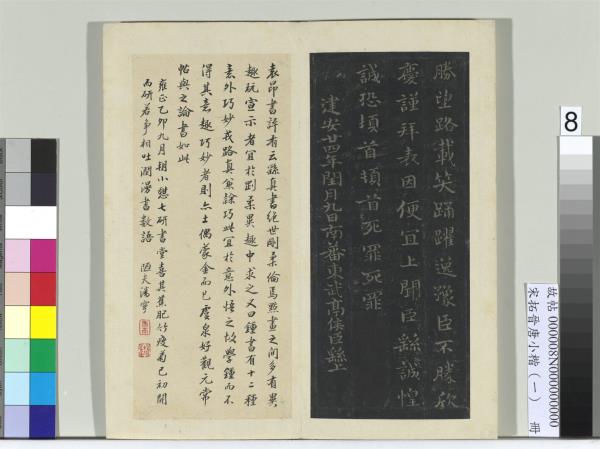 勝望路載笑踊躍逸豫臣不勝欣
慶謹拜表因便宜上聞臣繇誠惶
誠恐頓首頓首死罪死罪
建安廿四年閏月九日南蕃東武亭侯臣繇上
袁昂書評有云繇真書絕世剛柔倫焉點畫之間多有異
趣玩宣示者宜於剛柔異趣中求之又曰鍾書有十二種
意外巧妙義路真兼綜巧此宜於意外悟之故學鍾而不
得其意趣巧妙者則亦土偶蒙金而已虞泉好觀元常
帖與之論書如此
雍正乙卯九月朔小憩七研書堂喜其蕉肥竹瘦菊已初開
而研若爭相吐潤漫書數語
8
故帖 0000008N00000000000
宋拓晉唐小楷（一） 冊